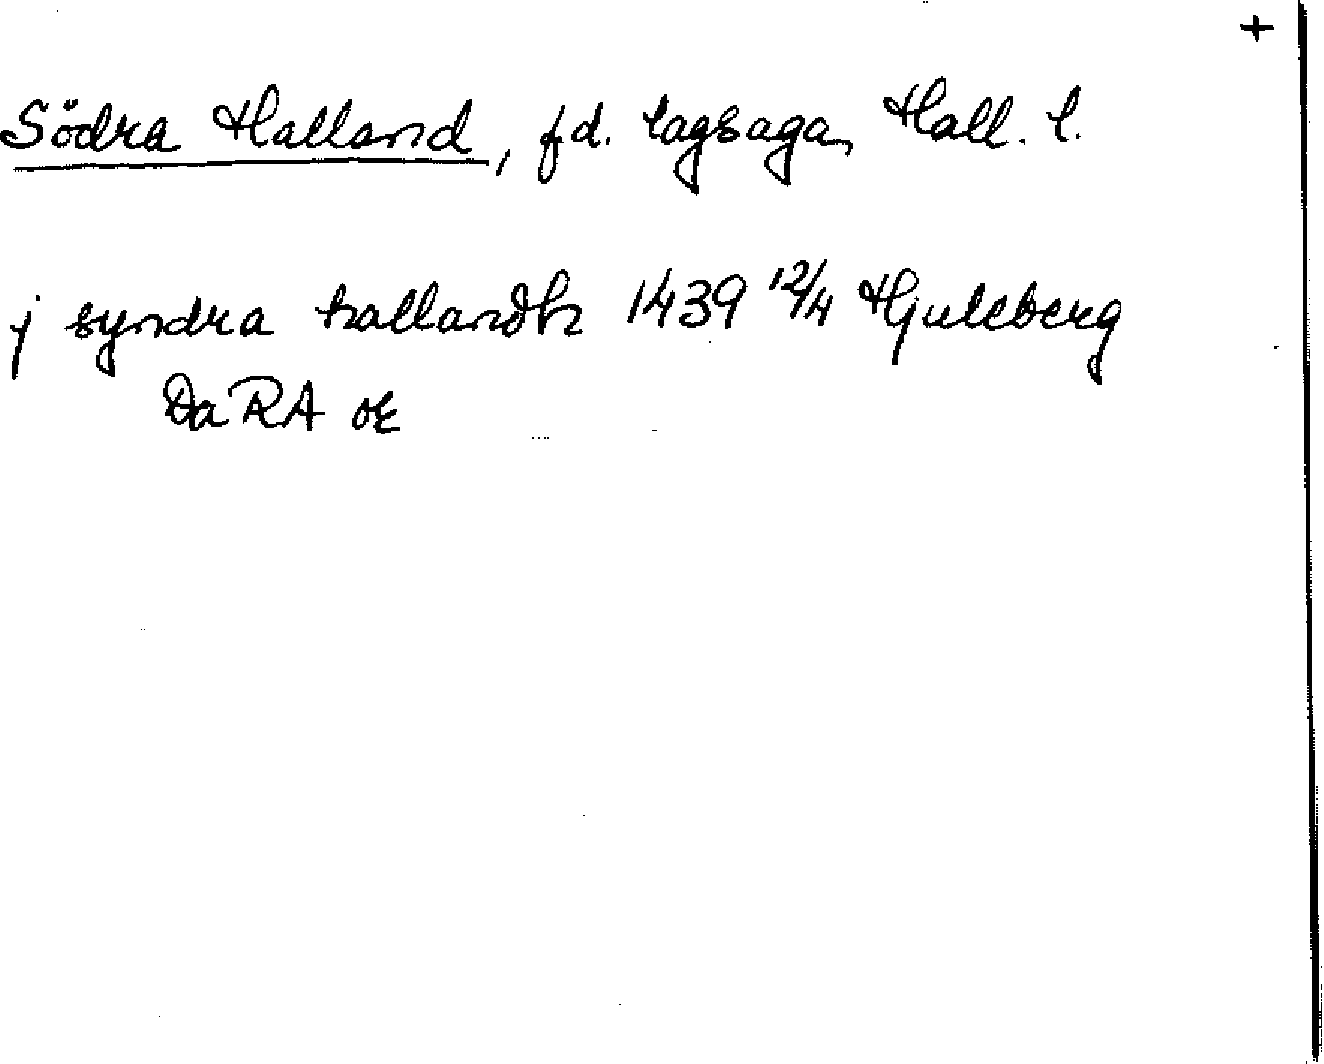 +
Södra Halland, f.d. lagsaga, Hall. l.
j syndra hallandh 1439 12/4 Hjuleberg
DaRA or